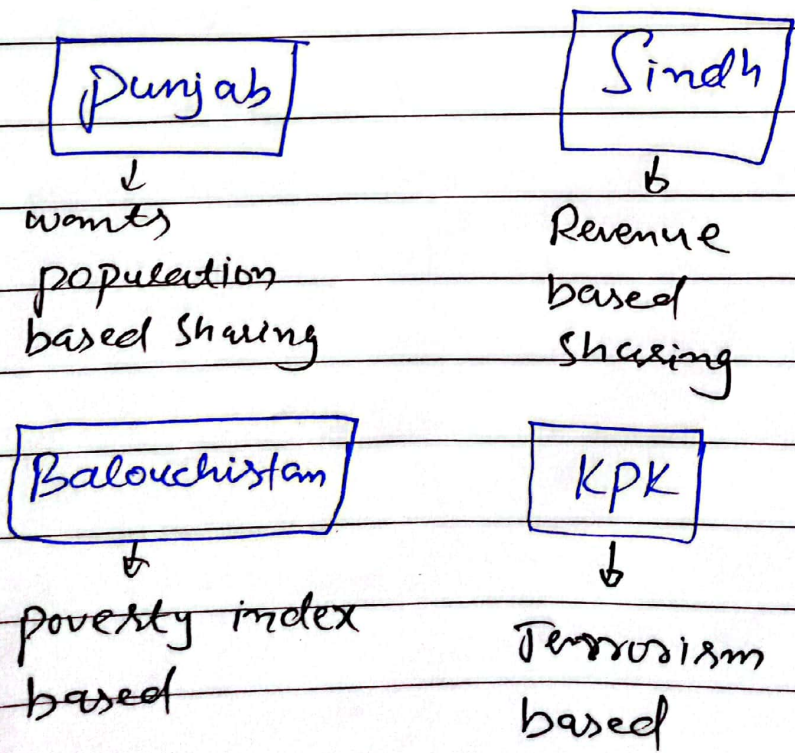 Punjab
wants
population
based sharing
Sindh
Revenue
based
sharing
Balouchistan
poverty index
based
KPK
Terrorism
based